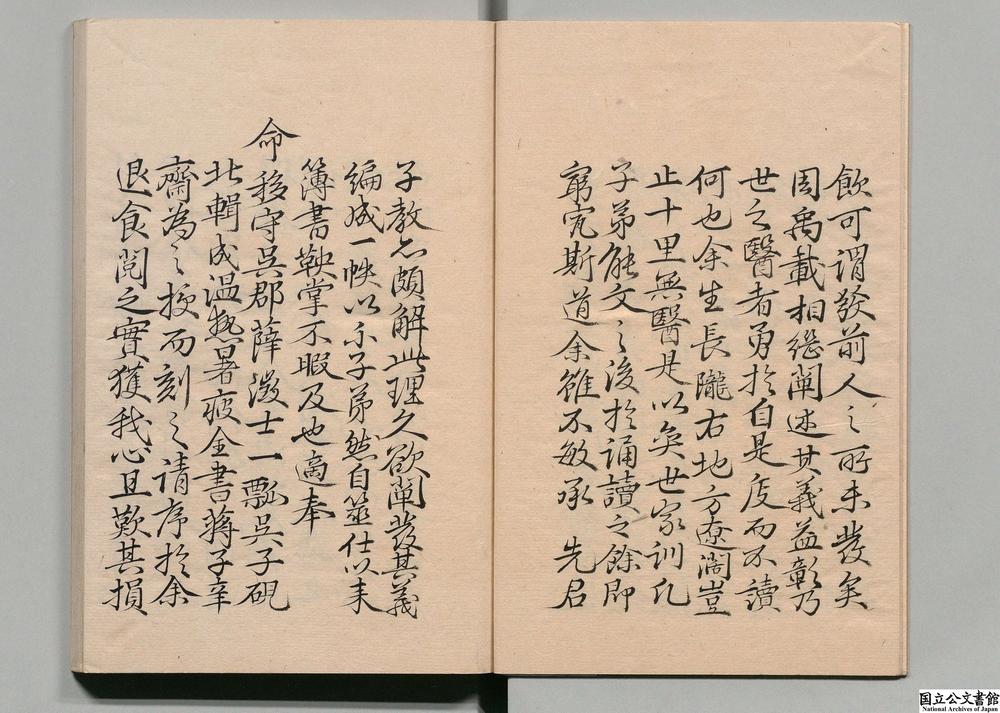 飲可謂發前人之所未發矣
周禹載相繼闡述其義益彰乃
世之醫者勇於自是廢而不讀
何也余生長隴右地方遼濶豈
止十里無醫是以奕世家訓凡
子弟能文之後於誦讀之餘即
窮究斯道余雖不敏承 先君
子教亦頗解此理久欲闡發其義
編成一帙以示子弟然自筮仕以来
簿書鞅掌不暇及也適奉
命移守吳郡薛徵士一瓢吳子硯
北輯成温熱暑疫全書蔣子辛
齋為之授而刻之請序於余
退食閲之實獲我心且歎其損
国立公文書館
National Archives of Japan